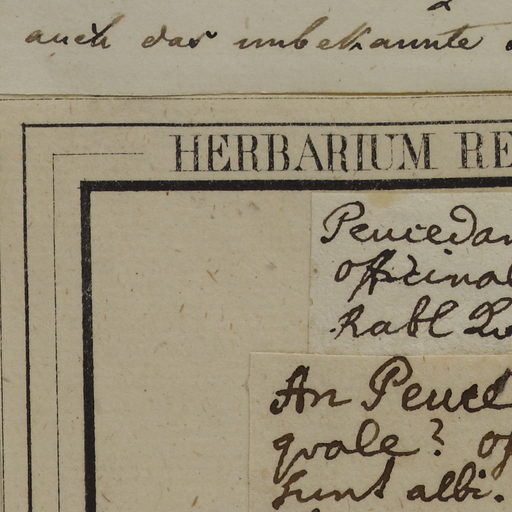 auch das unbekannte
HERBARIUM RE
Peucedan
officinal
Rabl
An Peuce
quale? of
sunt albi.